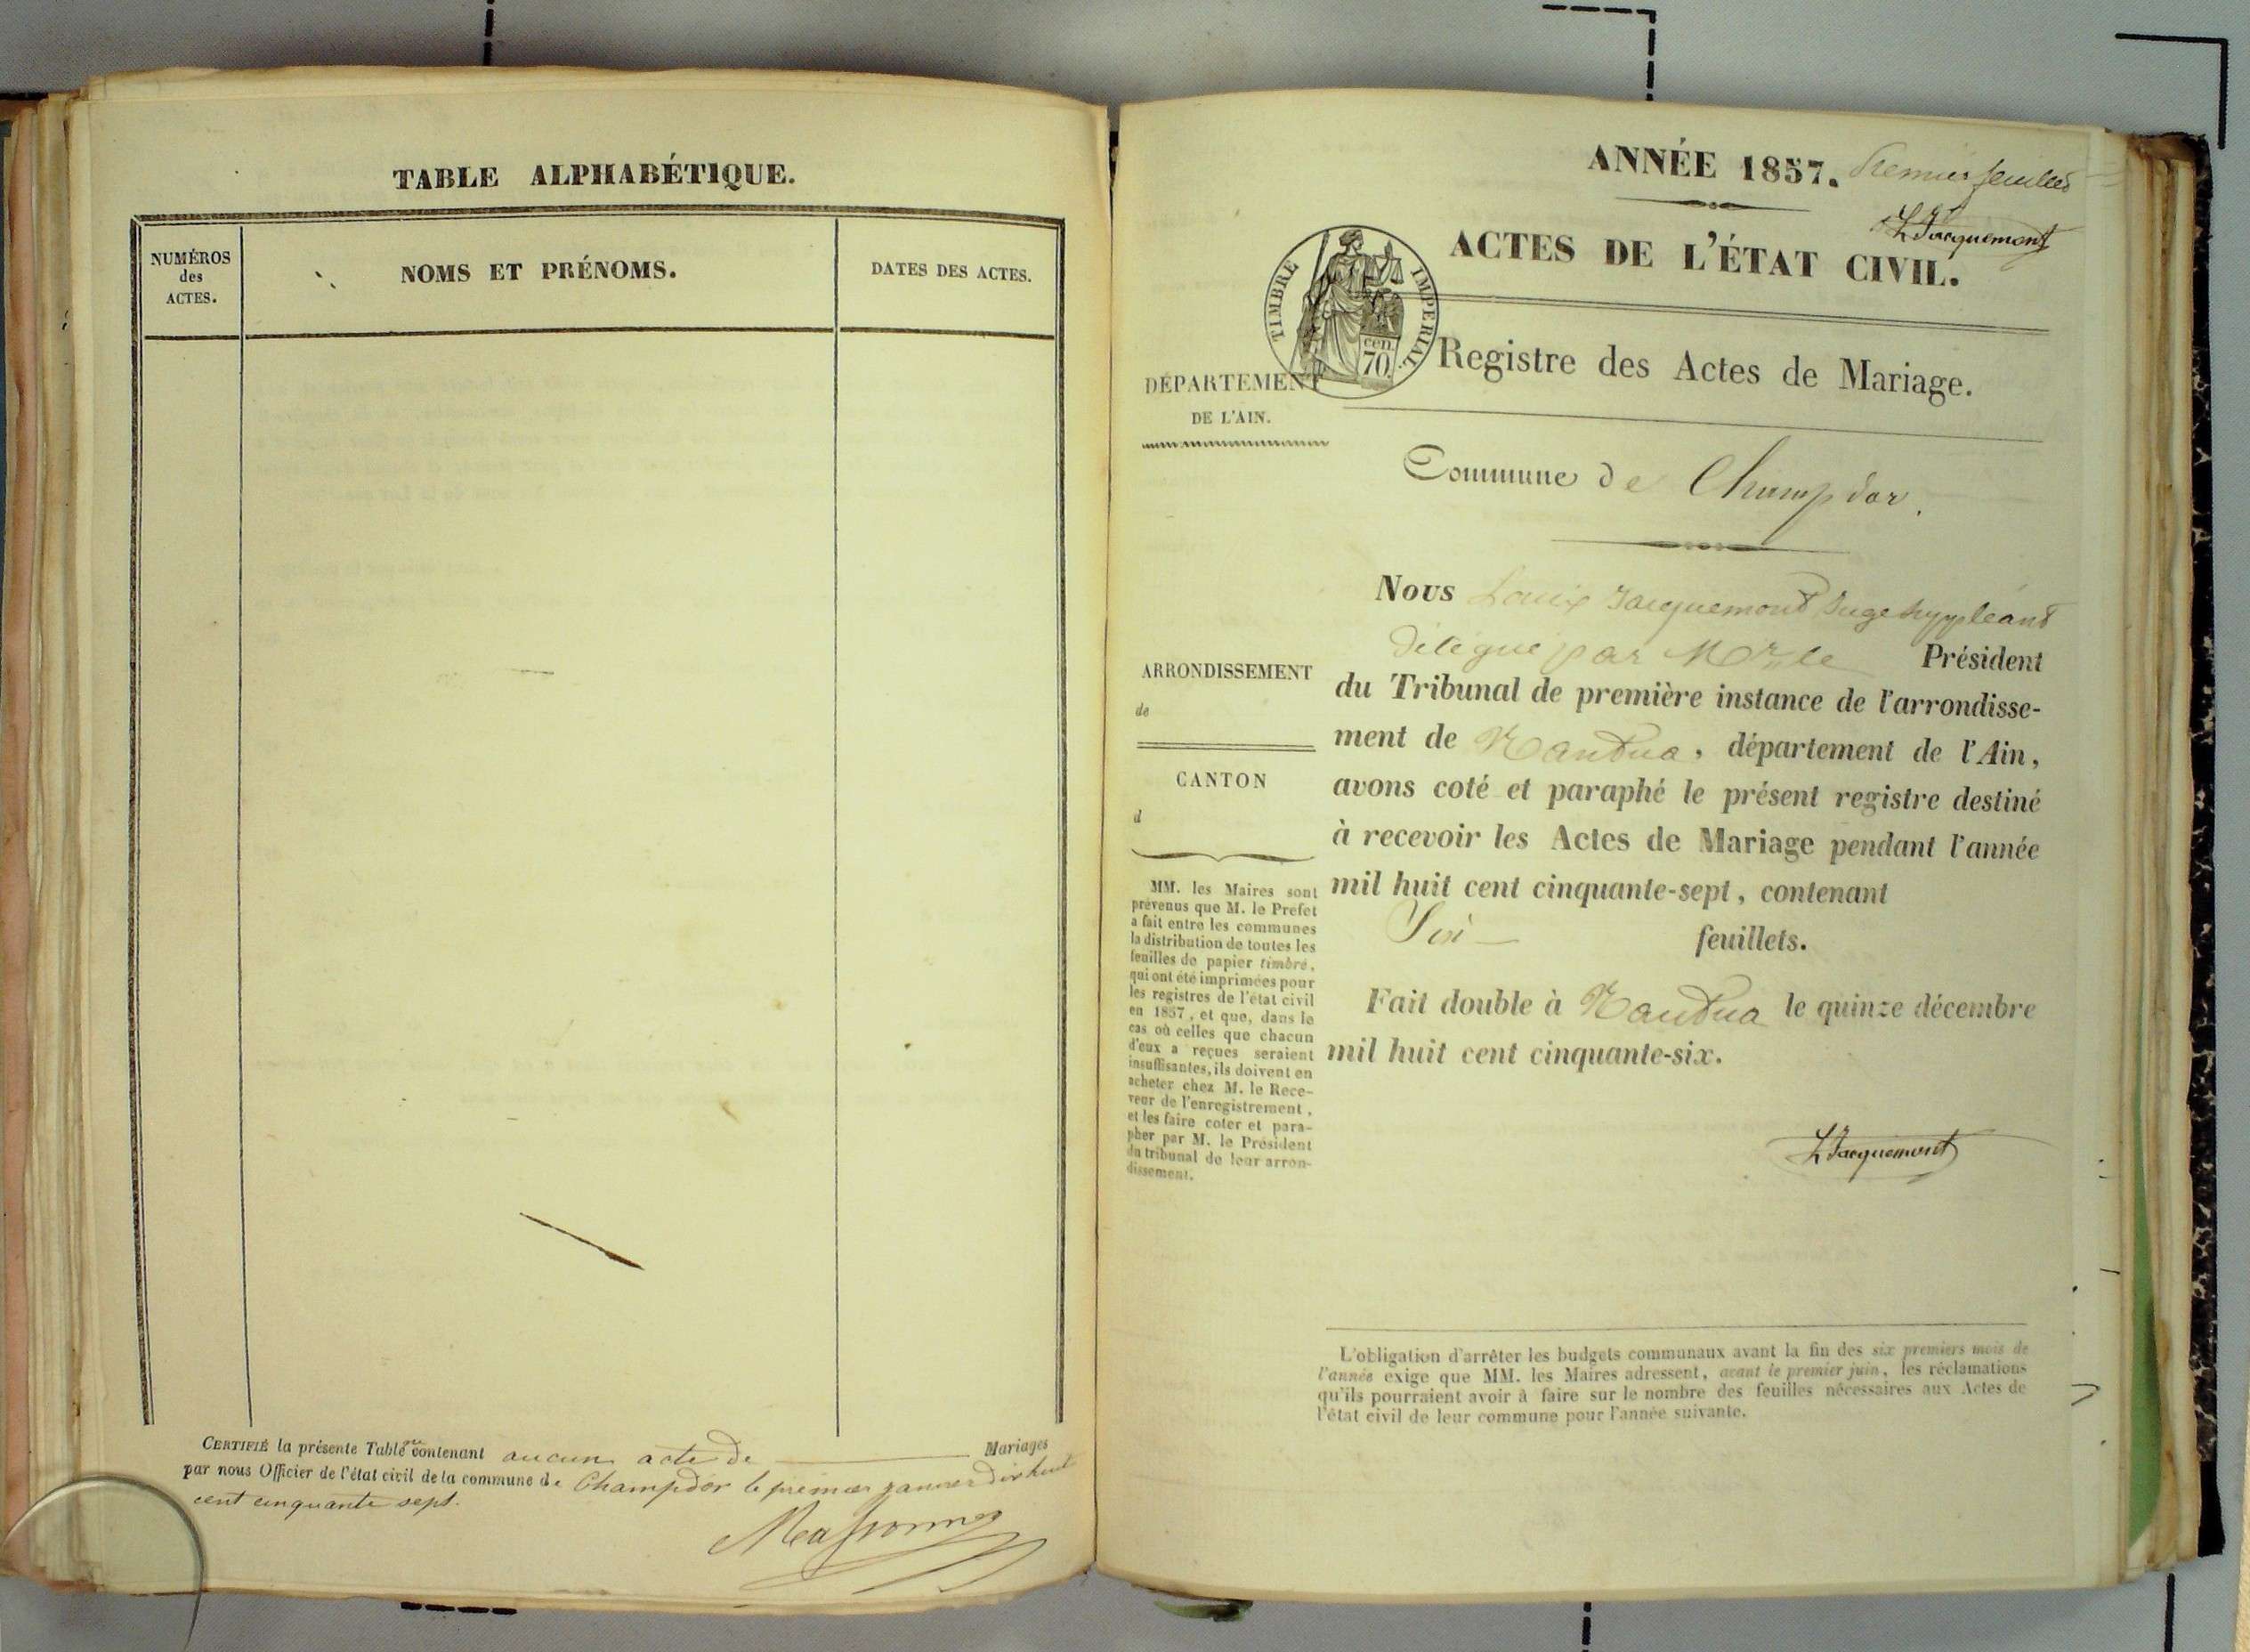 TABLE ALPHABÉTIQUE.
NUMÉROS
des
ACTES.
NOMS ET PRÉNOMS.
DATES DES ACTES.
CERTIFIÉ la présente Table contenant aucun acte de Mariages
par nous Officier de l'état civil de la commune de Champdor le premier janvier dix huit
cent cinquante sept.
ANNÉE 1857. Premier feuillet
LJacquemont
ACTES DE L'ÉTAT CIVIL.
TIMBRE IMPERIAL
cen.
70.
Registre des Actes de Mariage.
DÉPARTEMENT
DE L'AIN.
Commune de Champdor.
Nous Louis Jacquemont Juge suppléant
délégué par Mr le Président
du Tribunal de première instance de l'arrondisse-
ment de Nantua, département de l'Ain,
avons coté et paraphé le présent registre destiné
à recevoir les Actes de Mariage pendant l'année
mil huit cent cinquante-sept, contenant
Six feuillets.
Fait double à Nantua le quinze décembre
mil huit cent cinquante-six.
LJacquemont
ARRONDISSEMENT
de
CANTON
d
MM. les Maires sont
prévenus que M. le Prefet
a fait entre les communes
la distribution de toutes les
feuilles de papier timbré,
qui ont été imprimées pour
les registres de l'état civil
en 1857, et que, dans le
cas où celles que chacun
d'eux a reçues seraient
insuffisantes, ils doivent en
acheter chez M. le Rece-
veur de l'enregistrement,
et les faire coter et para-
pher par M. le Président
du tribunal de leur arron-
dissement.
L'obligation d'arrêter les budgets communaux avant la fin des six premiers mois de
l'année exige que MM. les Maires adressent, avant le premier juin, les réclamations
qu'ils pourraient avoir à faire sur le nombre des feuilles nécessaires aux Actes de
l'état civil de leur commune pour l'année suivante.